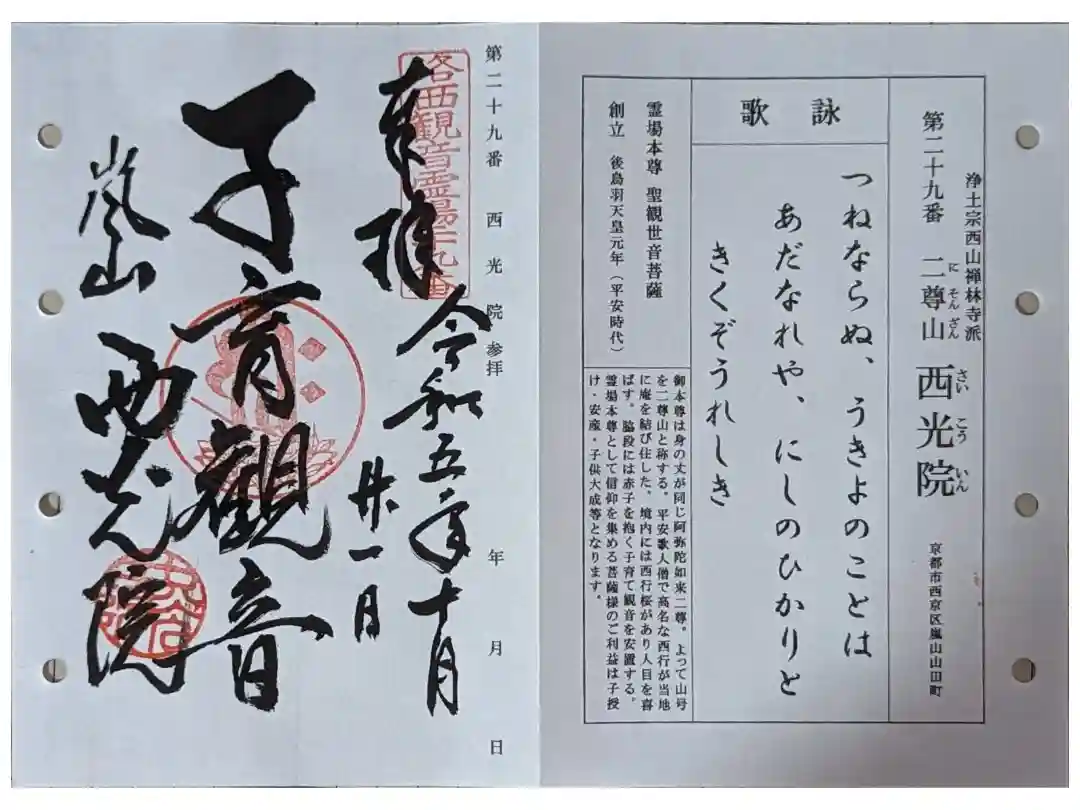 浄土宗西山禅林寺派
第二十九番 二尊山 西光院
にそんざん
さいこういん
京都市西京区嵐山山田町
詠歌
つねならぬ、うきよのことは
あだなれや、にしのひかりと
きくぞうれしき
霊場本尊 聖観世音菩薩
創立 後鳥羽天皇元年(平安時代)
御本尊は身の丈が同じ阿弥陀如来二尊。よって山号
を二尊山と称する。平安歌人僧で高名な西行が当地
に庵を結び住した、境内には西行桜があり人目を喜
ばす。脇段には赤子を抱く子育て観音を安置する。
霊場本尊として信仰を集める菩薩様のご利益は子授
け・安産・子供大成等となります。
第二十九番 西光院 参拝 年 月 日
洛西観音霊場二十九番
奉拝
令和五年十月
廿一日
子育觀音
嵐山 西光院